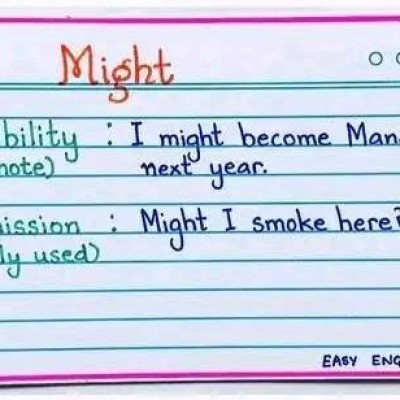 Might
bility : I might become Man
mote) next year.
ission : Might I smoke here?
ly used)
EASY ENG